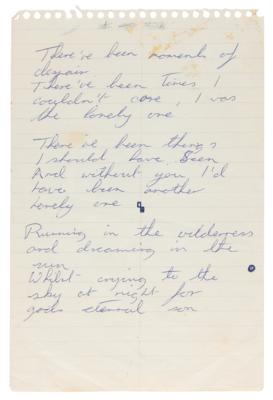 There've been moments of
despair
There've been times I
couldn't cope, I was
the lonely one
There've been things
I should have seen
And without you, I'd
have been another
lonely one
Running in the wilderness
and dreaming in the
sun
Whilst crying to the
sky at night for
gods eternal son